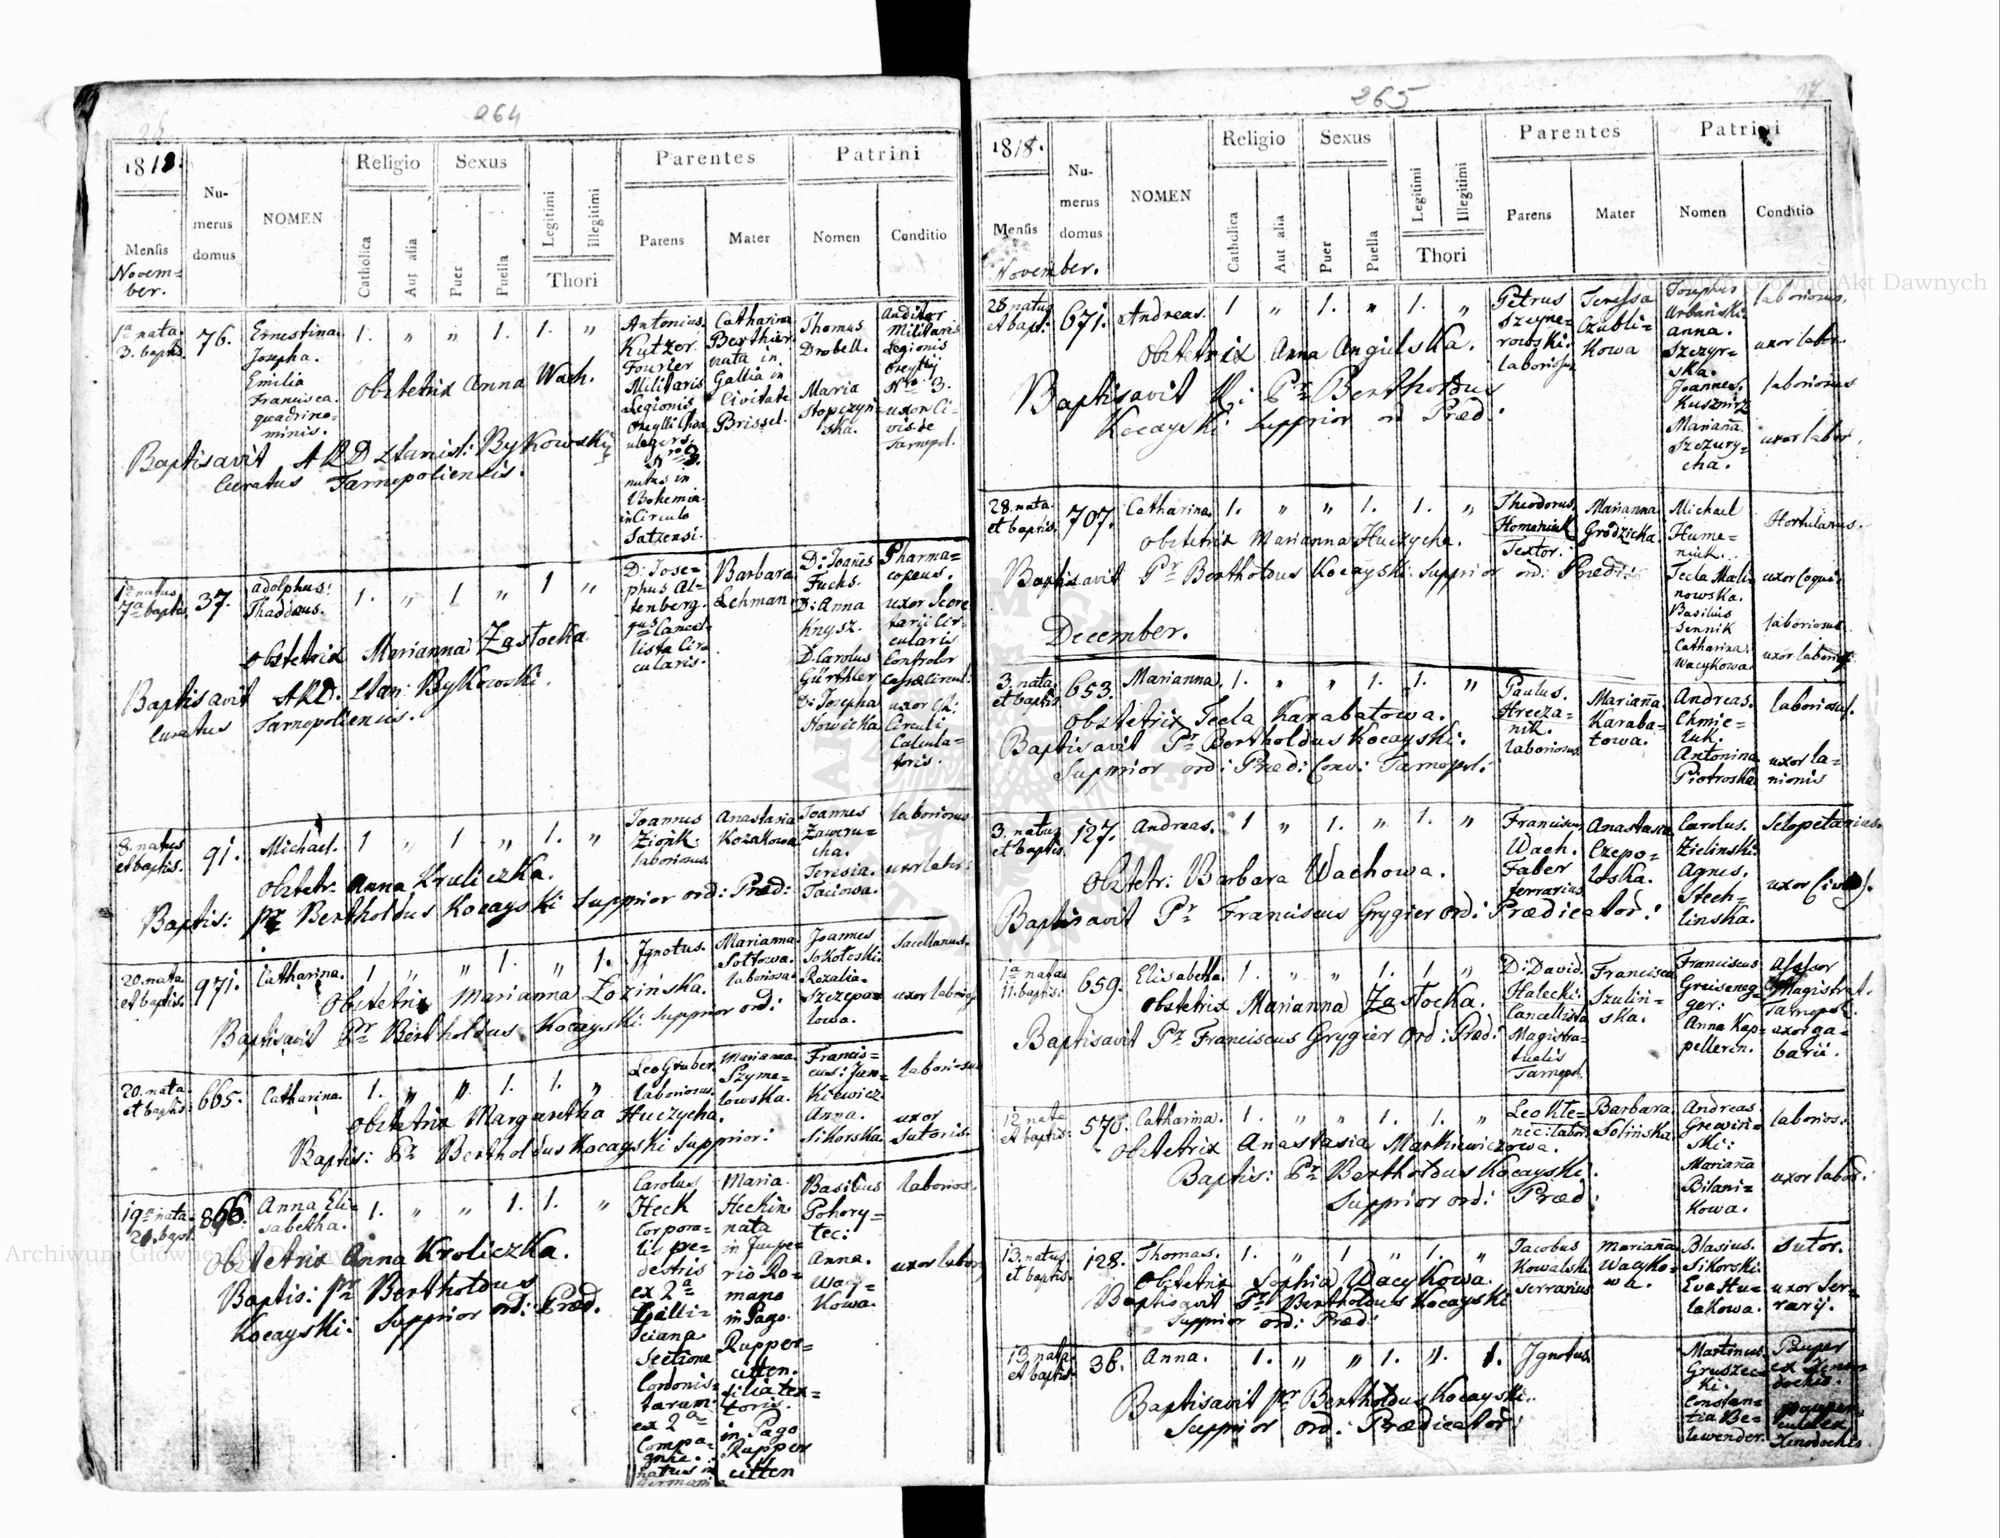 264
1818.
Mensis
Novem=
ber.
Nu-
merus
domus
NOMEN
Religio
Catholica
Aut alia
Sexus
Puer
Puella
Legitimi
Illegitimi
Thori
Parentes
Parens
Mater
Patrini
Nomen
Conditio
1a nata
3. baptis.
76.
Ernestina
Josepha.
Emilia
Francisca.
quadrino=
minis.
1. " " 1. 1. "
Obstetrix Anna Wach.
Baptisavit ARD Stanisl: Bykowski
Curatus Tarnopoliensis.
Antonius
Kutzer
Fourier
Militaris
Legionis
Nro 3.
natus in
Bohemia
in Circulo
Satzensi.
Catharina
Berthier
nata in
Gallia in
Civitate
Brissel.
Thomas
Drobell.
Maria
Stopczyń=
ska.
Auditor
Militaris
Legionis
Nro 3.
uxor Ci=
vis de
Tarnopol.
1a natus
7a baptis.
37.
Adolphus
Thaddæus.
1. " 1 " 1 "
Obstetrix Marianna Zastocka
Baptisavit ARD. Stan: Bykowski.
Curatus Tarnopoliensis.
D: Jose=
phus Al=
tenberg.
1us Cancel=
lista Cir=
cularis.
Barbara
Lehman
D: Joañes
Fuchs.
D: Anna
Knysz.
D. Carolus
Gürthler
D: Josepha
Nowicka
Pharma=
copeus.
uxor Secre
tarii Cir=
cularis
Controlor
Cassæ Circul:
uxor CR:
Circuli
Calcula=
toris.
8. natus
et baptis.
91.
Michael.
1 " 1 " 1. "
Obstetr: Anna Kruliczka.
Baptis: Pr Bertholdus Kocayski Supprior ord: Præd:
Joannes
Zionk
laboriosus.
Anastasia
Kozakowa
Joannes
Zaweru=
cha.
Teresia.
Taciowa.
laboriosus
uxor labr:
20. nata
et baptis.
971.
Catharina.
1 " " 1. " 1.
Obstetrix Marianna Łozińska.
Baptisavit Pr Bertholdus Kocayski: Supprior ord:
Jgnotus.
Marianna
Sottowa.
laboriosa.
Joannes
Sokołoski.
Rozalia.
Szczepa=
lowa.
Sacellanus.
uxor laborios.
20. nata
et baptis:
665.
Catharina.
1. " " 1. 1. "
Obstetrix Margaretha Huczycha.
Baptis: Pr Bertholdus Kocayski Supprior:
Leo Gruber
laboriosus.
Marianna
Szyme=
lowska.
Francis=
cus: Jan=
Kiewicz
Anna.
Sikorska.
laboriosus
uxor
Sutoris.
19a nata
21. bapt.
866.
Anna Eli=
sabetha.
1. " " 1. 1. "
Obstetrix Anna Kroliczka.
Baptis: Pr Bertholdus
Kocayski: Supprior ord: Præd.
Carolus
Heck
Corpora=
lis pe=
destris
ex 2a
Galli=
ciana
Sectione
Cordonis=
tarum
ex 2a
Compa=
gnia.
natus in
Germani
Maria
Heckin
nata
in Jmpe=
rio Ro=
mano
in Pago
Rupper=
citten.
filia tex=
toris.
in Pago
Rupper
citten
Basilius
Pohory=
lec:
Anna.
Wacy=
Kowa.
laborios.
uxor labor
265
1818.
Mensis
November.
Nu-
merus
domus
NOMEN
Religio
Catholica
Aut alia
Sexus
Puer
Puella
Legitimi
Illegitimi
Thori
Parentes
Parens
Mater
Patrini
Nomen
Conditio
28 natus
et bapt:
671.
Andreas.
1 " 1. " 1. "
Obstetrix Anna Angielska.
Baptisavit R: Pr Bertholdus
Kocayski Supprior ord Præd:
Petrus
Szeyne=
rowski.
laboriosus
Teressa
Czubli=
Kowa
Josephus
Urbański
Anna.
Szczyr=
ska.
Joannes
Kusznirz
Mariaña
Szczury=
cha.
laboriosus.
uxor labr.
laboriosus
uxor labor.
28. nata
et baptis.
707.
Catharina.
1. " " 1. 1. "
Obstetrix Marianna Huczycha.
Baptisavit Pr Bertholdus Kocayski Supprior ord: Præd:
Theodorus
Homeniuk
Textor:
Marianna
Grodzicka.
Michael
Hume=
niuk.
Tecla Mali
nowska.
Basilius
Sennik
Catharina
Wacykowa
Hortulanus.
uxor Coqui
laboriosus
uxor laborios.
December.
3. nata
et baptis.
653.
Marianna.
1. " " 1. 1. "
Obstetrix Tecla Karabatowa.
Baptisavit Pr Bertholdus Kocayski.
Supprior ord: Præd: Conv: Tarnopol:
Paulus.
Hrecza=
nik.
laboriosus
Mariaña
Karaba=
towa.
Andreas.
Chmie=
luk.
Antonina
Piotroska
laborious.
uxor la=
nionis
3. natus
et baptis.
127.
Andreas.
1 " 1. " 1. "
Obstetr: Barbara Wachowa.
Baptisavit Pr Franciscus Grygier ord: Prædicator:
Franciscus
Wach.
Faber
ferrarius
Anastasia
Czepo=
loska.
Carolus.
Zielinski.
Agnes.
Stech=
linska.
Sclopetarius.
uxor Civis.
1a nata
11. baptis:
659.
Elisabetha.
1. " " 1. 1 "
Obstetrix Marianna Zastocka.
Baptisavit Pr Franciscus Grygier Ord: Præd:
D: David.
Halecki.
Cancellista
Magistra=
tualis
Tarnopol.
Francisca
Szulin=
ska.
Franciscus
Greiseneg=
ger:
Anna Kap=
pelleren.
Assessor
Magistrat.
Tarnopol.
uxor ga=
barii.
12 nata
et baptis:
570.
Catharina.
1. " " 1. 1. "
Obstetrix Anastasia Markiewiczowa.
Baptis: Pr Bertholdus Kocayski.
Supprior ord: Præd:
Leo Kle=
nic: labor
Barbara
Solińska
Andreas
Grewin=
ski:
Mariaña
Bilani=
Kowa.
laborios:
uxor labor:
13. natus
et baptis.
128.
Thomas.
1. " 1 " 1. "
Obstetrix Sophia Wacykowa.
Baptisavit Pr Bertholdus Kocayski
Supprior ord: Præd:
Jacobus
Kowalski
serrarius
Mariaña
Wacyko=
wa.
Blasius.
Sikorski.
Eva Hu=
lakowa.
Sutor.
uxor Ser=
rarij.
13. nata
et baptis
36.
Anna.
1. " " 1. ". 1.
Baptisavit Pr Bertholdus Kocayski.
Supprior ord: Prædicator:
Jgnotus.
Martinus
Gruszec=
ki.
Constan=
tia Be=
lwender.
Pauper
ex Xeno=
dochio.
Xenodochio.
Archiwum Główne Akt Dawnych
Archiwum Główne Akt Dawnych